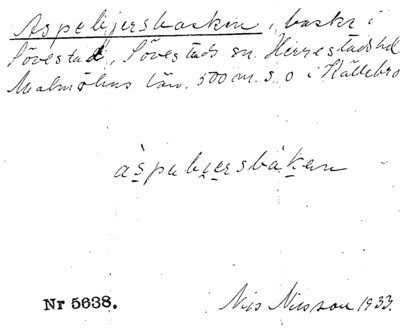 Aspebjersbacken, backe i
Sövestad, Sövestads sn. Herrestads hd
Malmöhus län. 500 m. s. o i Källebro
àspubjersbàken
Nr 5638.
Nils Nilsson 1933.